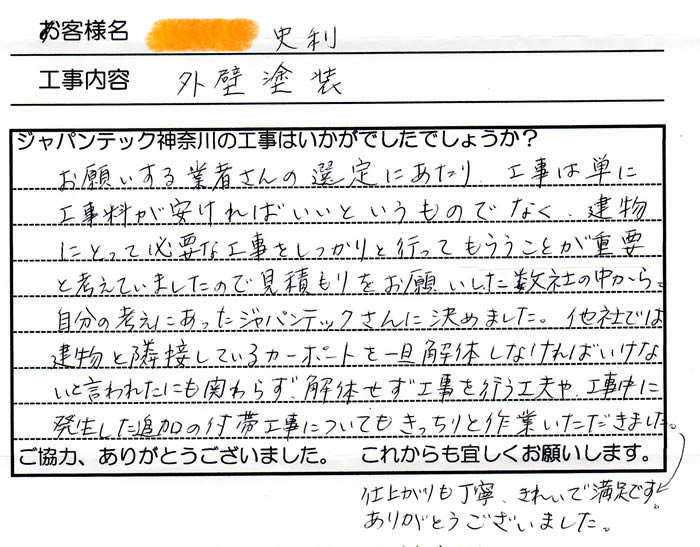 お客様名 史利
工事内容 外壁塗装
ジャパンテック神奈川の工事はいかがでしたでしょうか？
お願いする業者さんの選定にあたり、工事は単に
工事料が安ければいいというものでなく、建物
にとって必要な工事をしっかりと行ってもらうことが重要
と考えていましたので見積もりをお願いした数社の中から、
自分の考えにあったジャパンテックさんに決めました。他社では
建物と隣接しているカーポートを一旦解体しなければいけな
いと言われたにも関わらず、解体せず工事を行う工夫や、工事中に
発生した追加の付帯工事についてもきっちりと作業いただきました。
ご協力、ありがとうございました。 これからも宜しくお願いします。
仕上がりも丁寧、きれいで満足です。
ありがとうございました。